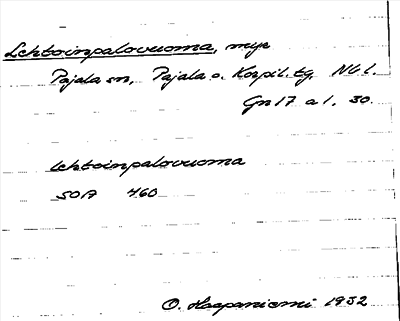 Lehtoinpalovuoma, myr
Pajala sn, Pajala o. Korpil. tg. Nb l.
Gn 17 a 1. 30.
lehtoinpalovuoma
SOA 460
O. Haapaniemi 1932